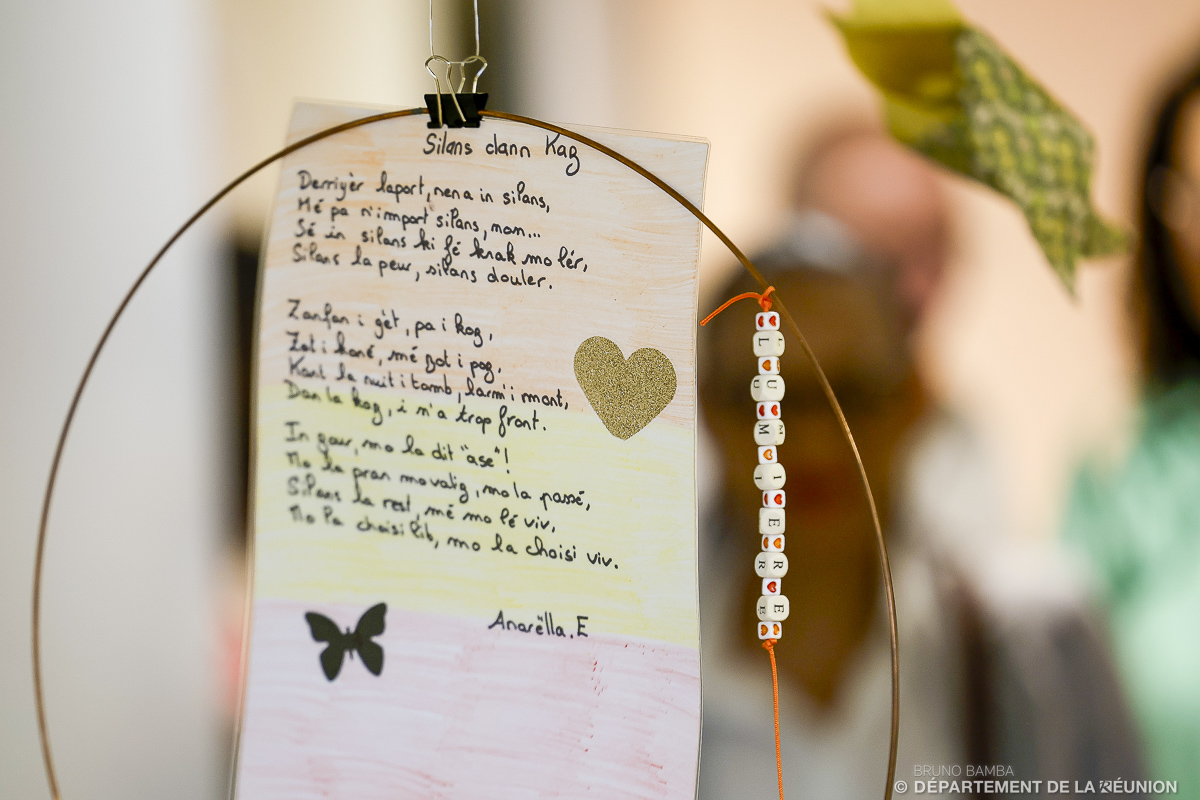 Silans dann Kaz
Derriyèr laport, nena in silans,
Mé pa n'import silans, non...
Sé in silans ki fé krak mo kér,
Silans la peur, silans douler.
Zanfan i gèt, pa i koz,
Zot i koné, mé zot i poz,
Kant la nuit i tomb, larm i mont,
Dan la kaz, i n'a trop front.
In zour, mo la dit "asé"!
Mo la pran mo valiz, mo la passé,
Silans la rest, mé mo lé viv,
Mo la choisi lib, mo la choisi viv.
Anaëlla.E
LUMIERE
BRUNO BAMBA
© DÉPARTEMENT DE LA RÉUNION